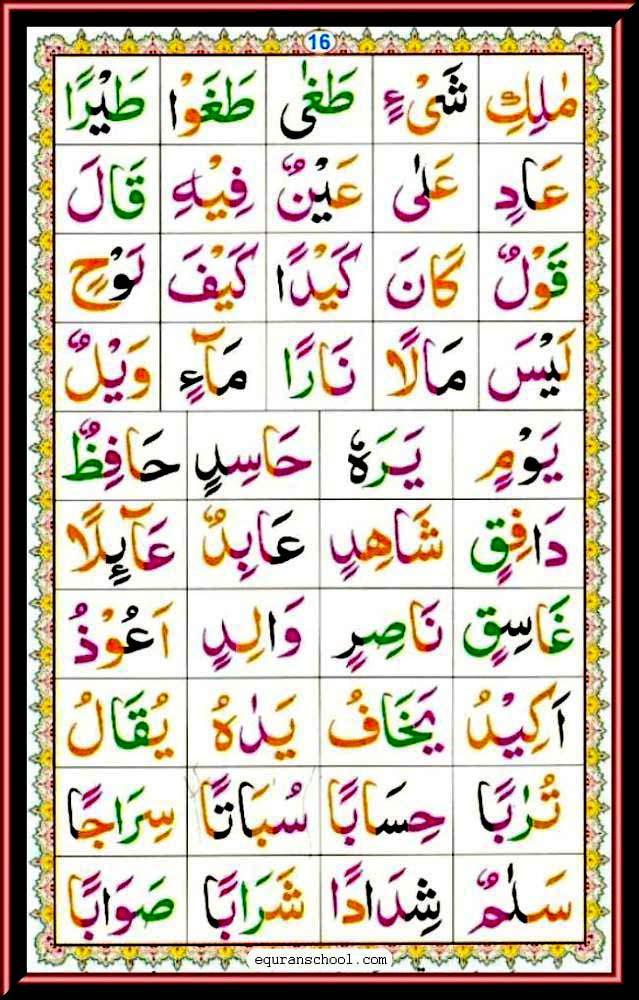 16
مٰلِكِ شَیْءٍ طَغٰی طَغَوْا طَيْرًا
عَادٍ عَلٰی عَيْنٌ فِيْهِ قَالَ
قَوْلٌ كَانَ كَيْدًا كَيْفَ لَوْحٍ
لَيْسَ مَالًا نَارًا مَآءٍ وَيْلٌ
يَوْمٍ يَرَهٗ حَاسِدٍ حَافِظٌ
دَافِقٍ شَاهِدٍ عَابِدٌ عَآىِٕلًا
غَاسِقٍ نَاصِرٍ وَالِدٍ اَعُوْذُ
اَكِيْدُ يَخَافُ يَدٰهُ يُقَالُ
تُرٰبًا حِسَابًا سُبَاتًا سِرَاجًا
سَلٰمٌ شِدَادًا شَرَابًا صَوَابًا
equranschool.com